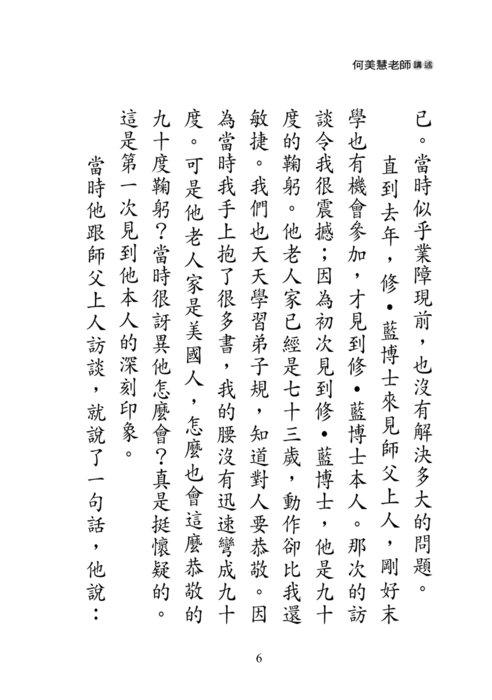 何美慧老師講述
已。當時似乎業障現前，也沒有解決多大的問題。
直到去年，修•藍博士來見師父上人，剛好末
學也有機會參加，才見到修•藍博士本人。那次的訪
談令我很震撼；因為初次見到修•藍博士，他是九十
度的鞠躬。他老人家已經是七十三歲，動作卻比我還
敏捷。我們也天天學習弟子規，知道對人要恭敬。因
為當時我手上抱了很多書，我的腰沒有迅速彎成九十
度。可是他老人家是美國人，怎麼也會這麼恭敬的
九十度鞠躬？當時很訝異他怎麼會？真是挺懷疑的。
這是第一次見到他本人的深刻印象。
當時他跟師父上人訪談，就說了一句話，他說：
6